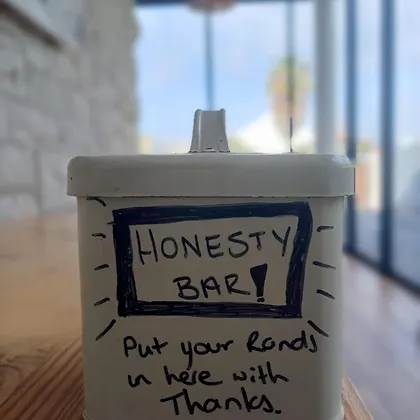 HONESTY
BAR!
Put your Rands
in here with
Thanks.